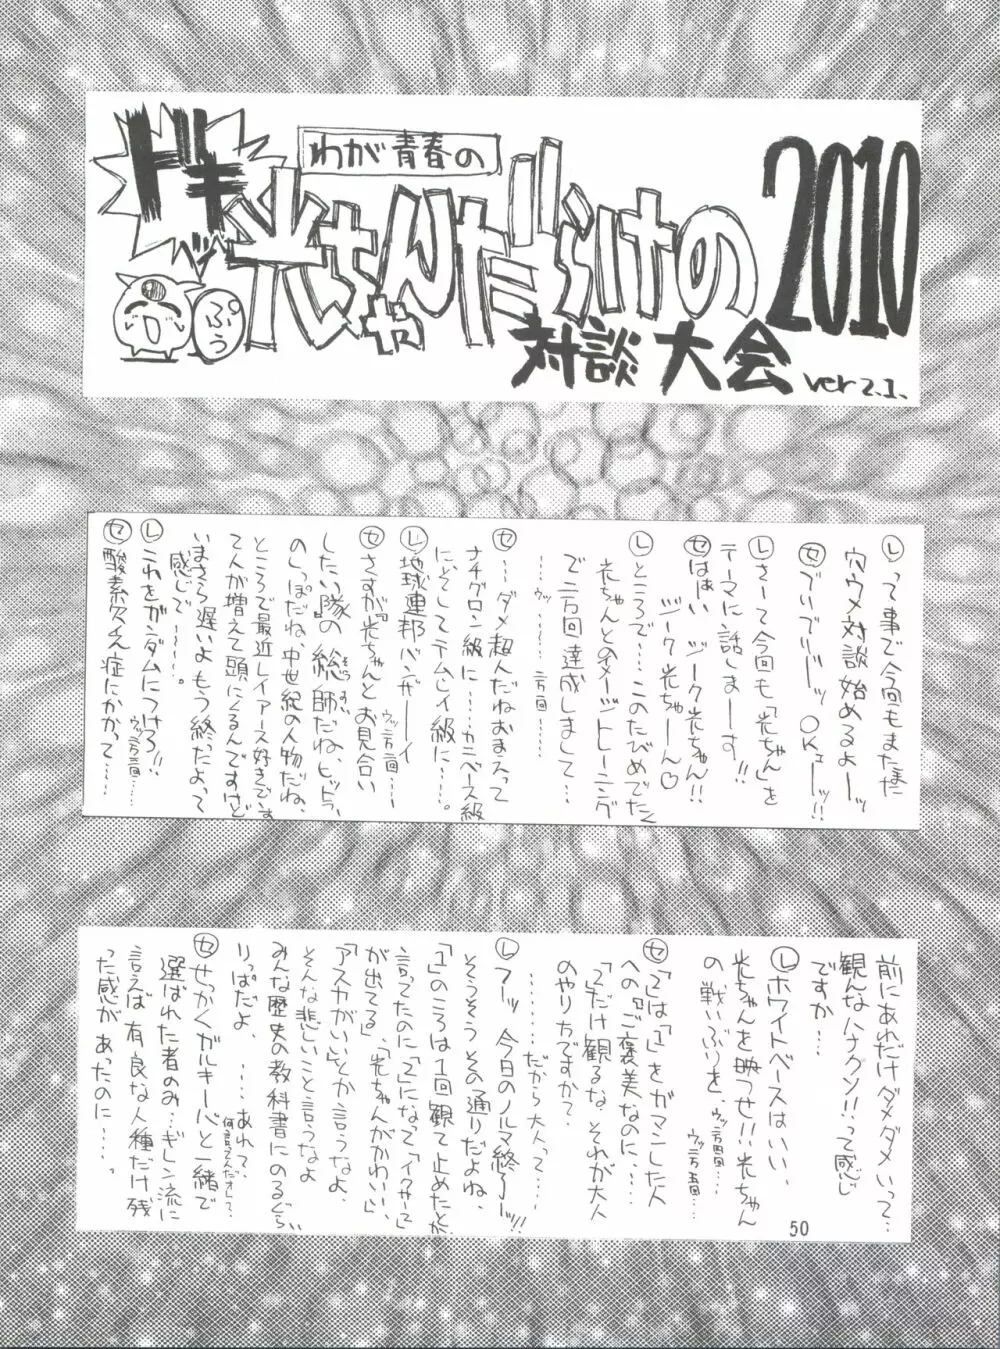 わが青春の
ドキッ
光ちゃんだらけの
2010
対談大会 ver2.1.
ぷぅ
レって事で今回もまたまた
穴ウメ対談始めるよーッ
セでいでいでいーッッOKェーッ!!
レさーて今回も「光ちゃん」を
テーマに話しまーーす!!
セはぁい ジーク光ちゃん!!
ジーク光ちゃーん♡
レところで……このたびめでたく
光ちゃんとのイメージトレーニング
で二万回達成しまして
セ……ダメ超人だねおまえって
ナチグロン級に……カニベース級
にいそしてテムレイ級に……。
レ地球連邦バンザーーイ
セさすが『光ちゃんとお見合い
したい隊』の総師だね、ヒットラー
のしっぽだね、中世紀の人物だね、
ところで最近レイアース好きでーす
て人が増えて頭にくるんですけど
いまさら遅いよもう終ったよって
感じで……。
レこれをガンダムにつけろ!!
セ酸素欠乏症にかかって……
前にあれだけダメダメいって…
観んなハナクソ!!って感じ
ですか…
レホワイトベースはいい、
光ちゃんを映つせ!!!光ちゃん
の、戦いぶりを、
セ「2」は「1」をガマンした人
への『ご褒美なのに……
「2」だけ観るな?それが大人
のやり方ですか?
………だから大人って……
レフーッ 今日のノルマ終了ーッ!!
そうそうその通りだよね、
「1」のころは1回観て止めたとか
言ってたのに「2」になって「イクサーて
が出てる」、「光ちゃんがかわいい」
「アスカがいい」とか言うなよ、
そんな悲しいこと言うなよ
みんな歴史の教科書にのるぐらい
りっぱだよ、……あれ?、
何言ってんだオレって、
セせっかくガルキーバと一緒で
選ばれた者のみ…ギレン流に
言えば有良な人種だけ残
った感があったのに……
50